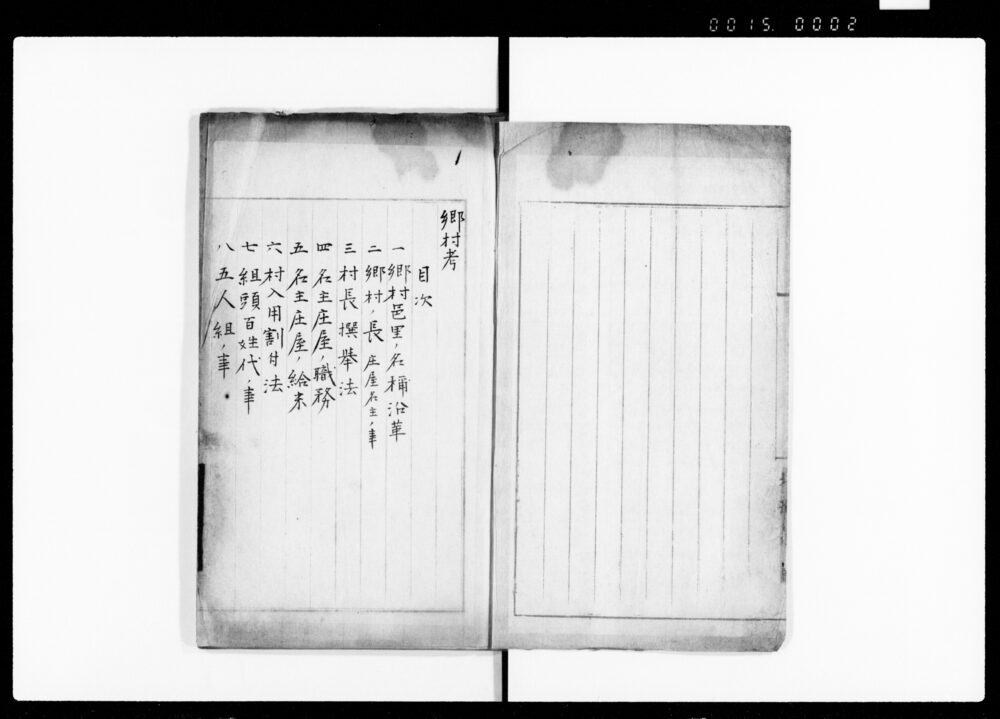 0015.0002
鄕村考
目次
一 鄕村邑里ノ名稱沿革
二 鄕村ノ長 庄屋名主ノ事
三 村長撰擧法
四 名主庄屋ノ職務
五 名主庄屋ノ給米
六 村入用割付法
七 組頭百姓代ノ事
八 五人組ノ事